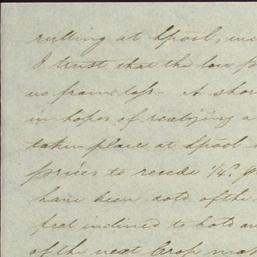 ruling at Lpool, we
I trust that the low p
us from loss - A shor
in hopes of realizing a
taken place at Lpool
prices to recede 1/4d. g
have been sold of the
feel inclined to hold on
of the next Crop may